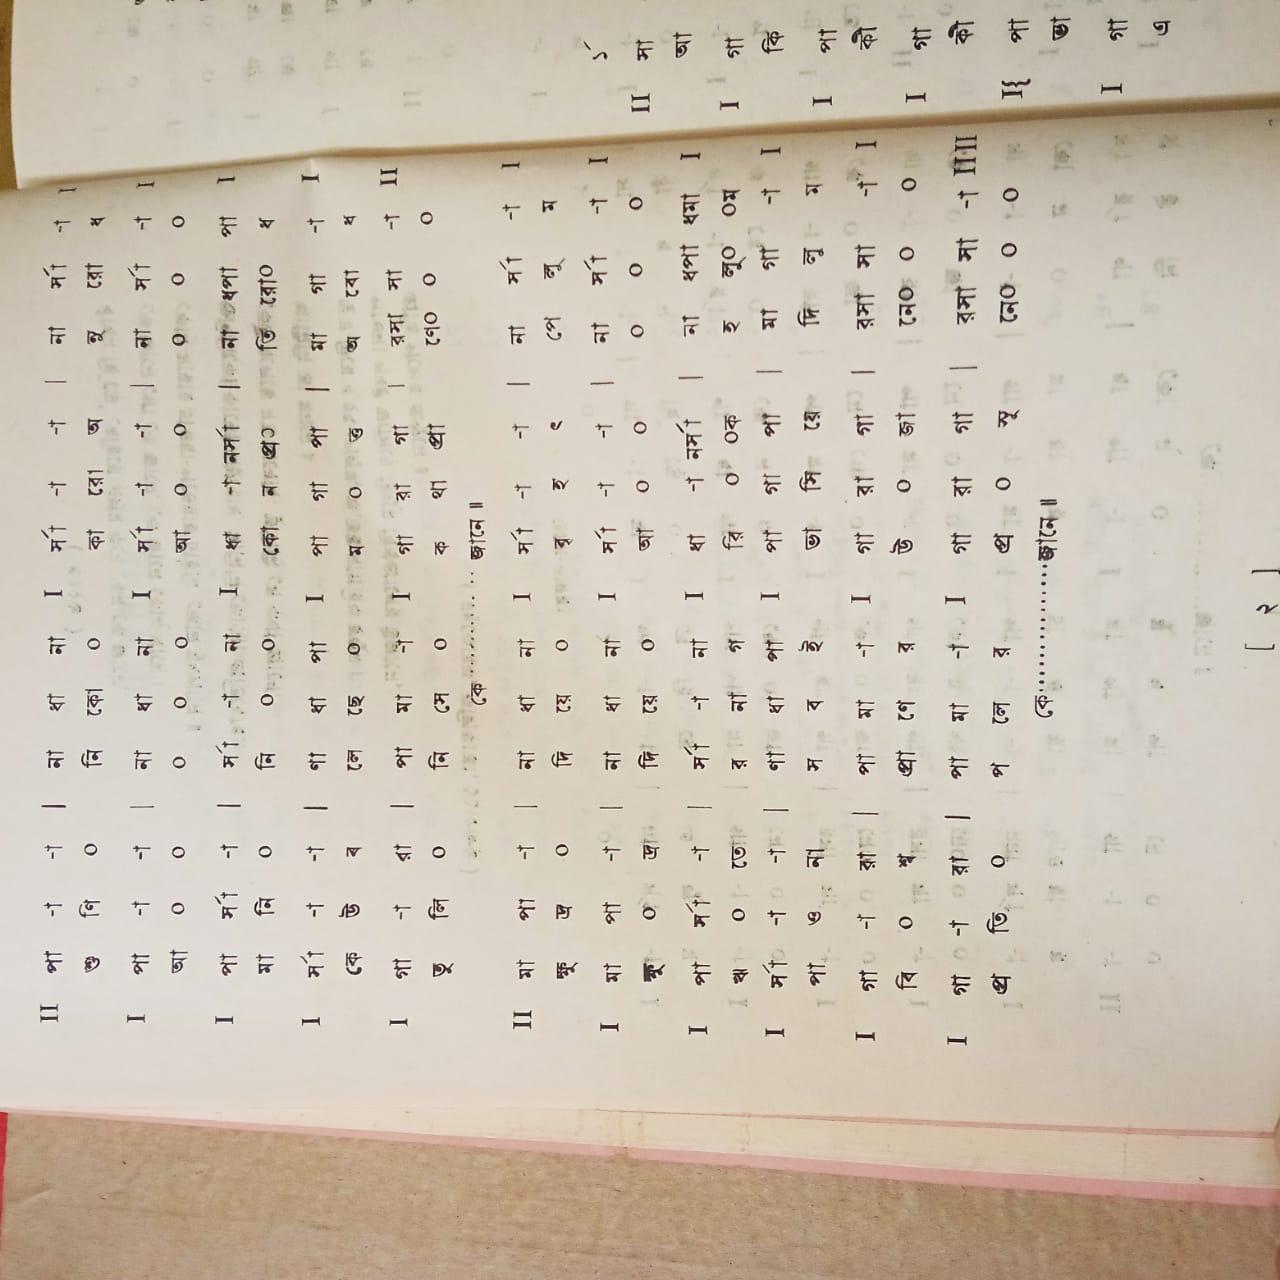 II পা -া -া | না ধা না I র্সা -া -া | না র্সা -া I
শু ণি ০ নি কো ০ কা রো অ নু রো ধ
I পা -া -া | না ধা না I র্সা -া -া | না র্সা -া I
আ ০ ০ ০ ০ ০ আ ০ ০ ০ ০ ০
I পা র্সা -া | র্সা -া না I ধা -া নর্সা | না ধপা পা I
মা নি ০ নি ০ ০ কো ন প্র০ তি রো০ ধ
I র্সা -া -া | ণা ধা পা I পা গা পা | মা গা -া I
কে উ ব লে ছে ০ ম ০ ত্ত অ বো ধ
I গা -া রা | পা মা -া I গা রা গা | রসা সা -া II
ভু লি ০ নি সে ০ ক থা প্রা ণে০ ০ ০
কে..........জানে ॥
II মা পা -া | না ধা না I র্সা -া -া | না র্সা -া I
ক্ষু দ্র ০ দি য়ে ০ বৃ হ ৎ পে লু ম
I মা পা -া | না ধা না I র্সা -া -া | না র্সা -া I
ক্ষু ০ দ্র দি য়ে ০ আ ০ ০ ০ ০ ০
I পা র্সা -া | র্সা -া না I ধা -া নর্সা | না ধপা ধমা I
ঋ ০ তে র না গ রি ০ ০ক হ লু০ ০ম
I র্সা -া -া | ণা ধা পা I পা গা পা | মা গা -া I
পা ও না স ব ই ভা সি য়ে দি লু ম
I গা -া রা | পা মা -া I গা রা গা | রসা সা -া I
বি ০ শ্ব প্রা ণে র উ ০ জা নে০ ০ ০
I গা -া রা | পা মা -া I গা রা গা | রসা সা -া II II
প্র তি ০ প লে র প্র ০ সূ নে০ ০ ০
কে..............জানে ॥
[ ২ ]
১
II সা
আ
I গা
কি
I পা
কী
I গা
কী
I{ পা
ভা
I গা
এ